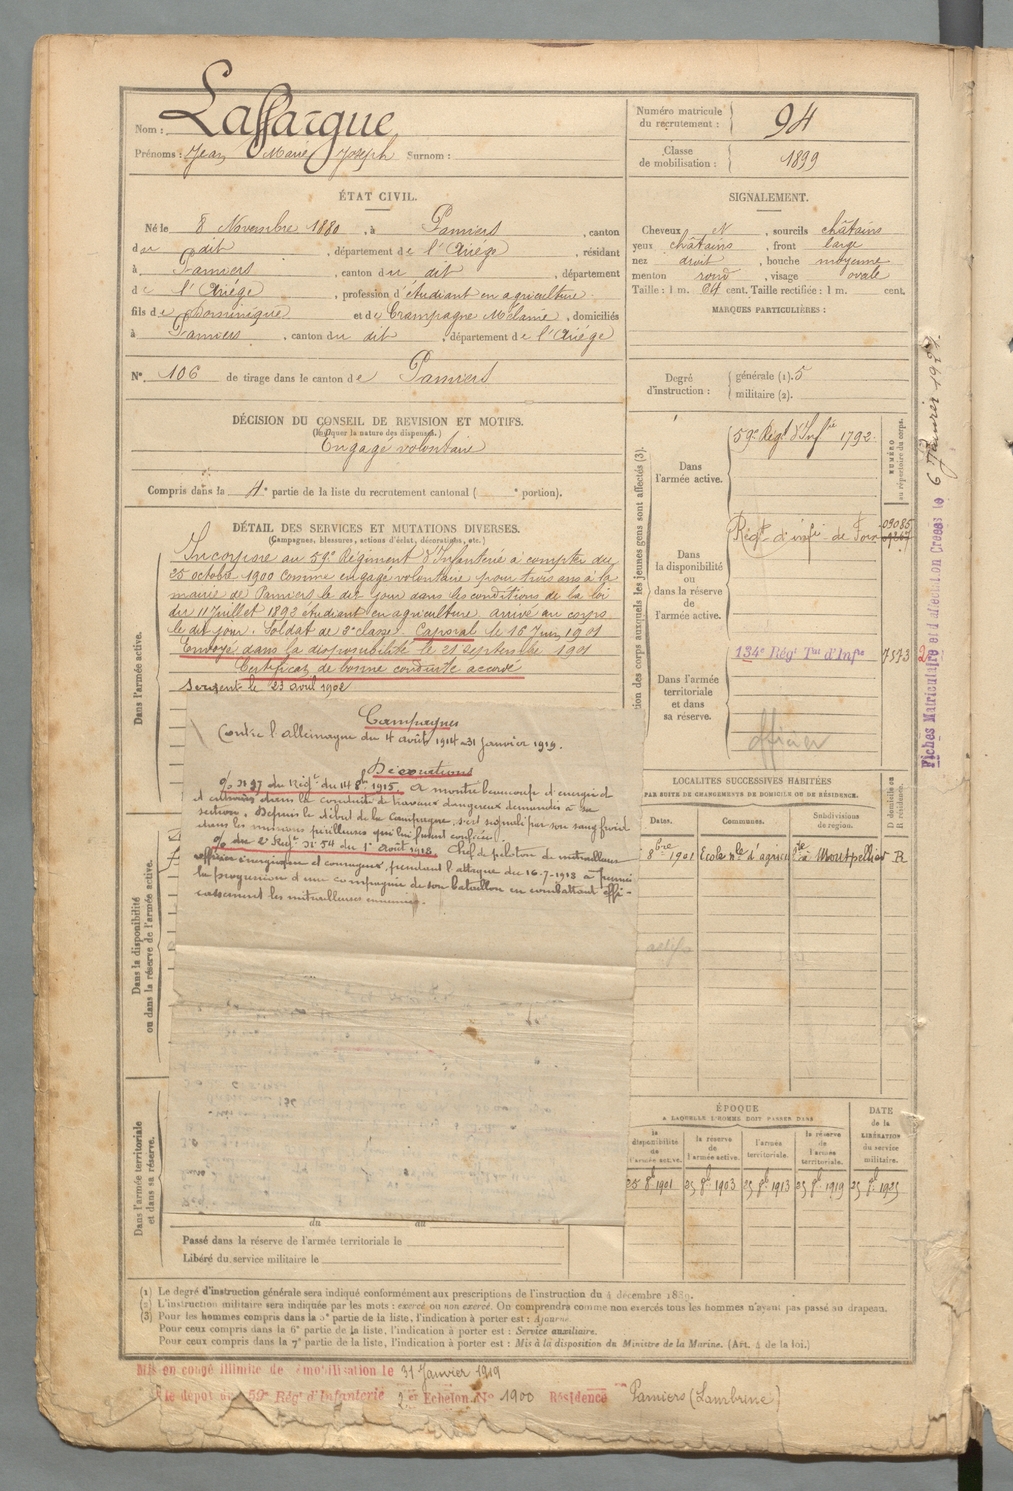 Nom : Laffargue
Prénoms : Jean Marie Joseph Surnom :
Numéro matricule
du recrutement : 94
Classe
de mobilisation : 1899
ÉTAT CIVIL.
Né le 8 Novembre 1880, à Pamiers, canton
du dit, département de l'Ariège, résidant
à Pamiers, canton du dit, département
de l'Ariège, profession d'étudiant en agriculture
fils de Dominique et de Crampagne Mélanie, domiciliés
à Pamiers, canton du dit, département de l'Ariège
N° 106 de tirage dans le canton de Pamiers
SIGNALEMENT.
Cheveux N, sourcils châtains
yeux châtains, front large
nez droit, bouche moyenne
menton rond, visage ovale
Taille : 1 m. 64 cent. Taille rectifiée : 1 m. cent.
MARQUES PARTICULIÈRES :
Degré
d'instruction :
générale (1). 5
militaire (2).
DÉCISION DU CONSEIL DE REVISION ET MOTIFS.
(Indiquer la nature des dispenses.)
Engagé volontaire
Compris dans la 4e partie de la liste du recrutement cantonal ( e portion).
DÉTAIL DES SERVICES ET MUTATIONS DIVERSES.
(Campagnes, blessures, actions d'éclat, décorations, etc.)
Dans l'armée active.
Incorporé au 59e Régiment d'Infanterie à compter du
25 octobre 1900 comme engagé volontaire pour trois ans à la
mairie de Pamiers le dit jour dans les conditions de la loi
du 11 Juillet 1892 étudiant en agriculture arrivé au corps
le dit jour. Soldat de 2e classe. Caporal le 16 Juin 1901
Envoyé dans la disponibilité le 21 septembre 1901
Certificat de bonne conduite accordé
Sergent le 23 avril 1902
Campagnes
Contre l'allemagne du 4 août 1914 - 31 Janvier 1919.
Décorations
o/o N 97 du Régt du 14 8bre 1915. A montré beaucoup d'énergie et
d'entrain dans la conduite de travaux dangereux demandés à sa
section. Depuis le début de la Campagne, s'est signalé par son sang froid
dans les missions périlleuses qui lui furent confiées.
o/o du 2e Régt N 54 du 1er Août 1918. Chef de peloton de mitrailleuses
officier énergique et courageux, pendant l'attaque du 16-7-1918 a permis
la progression d'une compagnie de son bataillon en combattant effi-
cacement les mitrailleuses ennemies.
Dans la disponibilité
ou dans la réserve de l'armée active.
Dans l'armée territoriale
et dans sa réserve.
du au
Passé dans la réserve de l'armée territoriale le
Libéré du service militaire le
tion des corps auxquels les jeunes gens sont affectés (3).
NUMÉRO
au répertoire du corps.
Dans
l'armée active.
59e Régt d'Infrie 1792
Dans
la disponibilité
ou
dans la réserve
de
l'armée active.
Régt d'infie de Foix 09085
Dans l'armée
territoriale
et dans
sa réserve.
134e Régt Tal d'Infie 7573
officier
Fiches Matriculaire et d'affectation Créées le 6 Janvier 192
LOCALITÉS SUCCESSIVES HABITÉES
PAR SUITE DE CHANGEMENTS DE DOMICILE OU DE RÉSIDENCE.
Dates. Communes. Subdivisions
de région.
D domicile ou
R résidence.
8bre 1901 Ecole nle d'agricure à Montpellier R
ÉPOQUE
A LAQUELLE L'HOMME DOIT PASSER DANS
la
disponibilité
de
l'armée active.
la réserve
de
l'armée active.
l'armée
territoriale.
la réserve
de
l'armée
territoriale.
DATE
de la
LIBÉRATION
du service
militaire.
25 8bre 1901 25 8bre 1903 25 8bre 1913 25 8bre 1919 25 8bre 1925
(1) Le degré d'instruction générale sera indiqué conformément aux prescriptions de l'instruction du 4 décembre 1889.
(2) L'instruction militaire sera indiquée par les mots : exercé ou non exercé. On comprendra comme non exercés tous les hommes n'ayant pas passé au drapeau.
(3) Pour les hommes compris dans la 5e partie de la liste, l'indication à porter est : Ajourné.
Pour ceux compris dans la 6e partie de la liste, l'indication à porter est : Service auxiliaire.
Pour ceux compris dans la 7e partie de la liste, l'indication à porter est : Mis à la disposition du Ministre de la Marine. (Art. 4 de la loi.)
Mis en congé illimité de démobilisation le 31 Janvier 1919
le dépôt du 59e Rég d'Infanterie 2e Echelon No 1900 Résidence Pamiers (Lambrine)